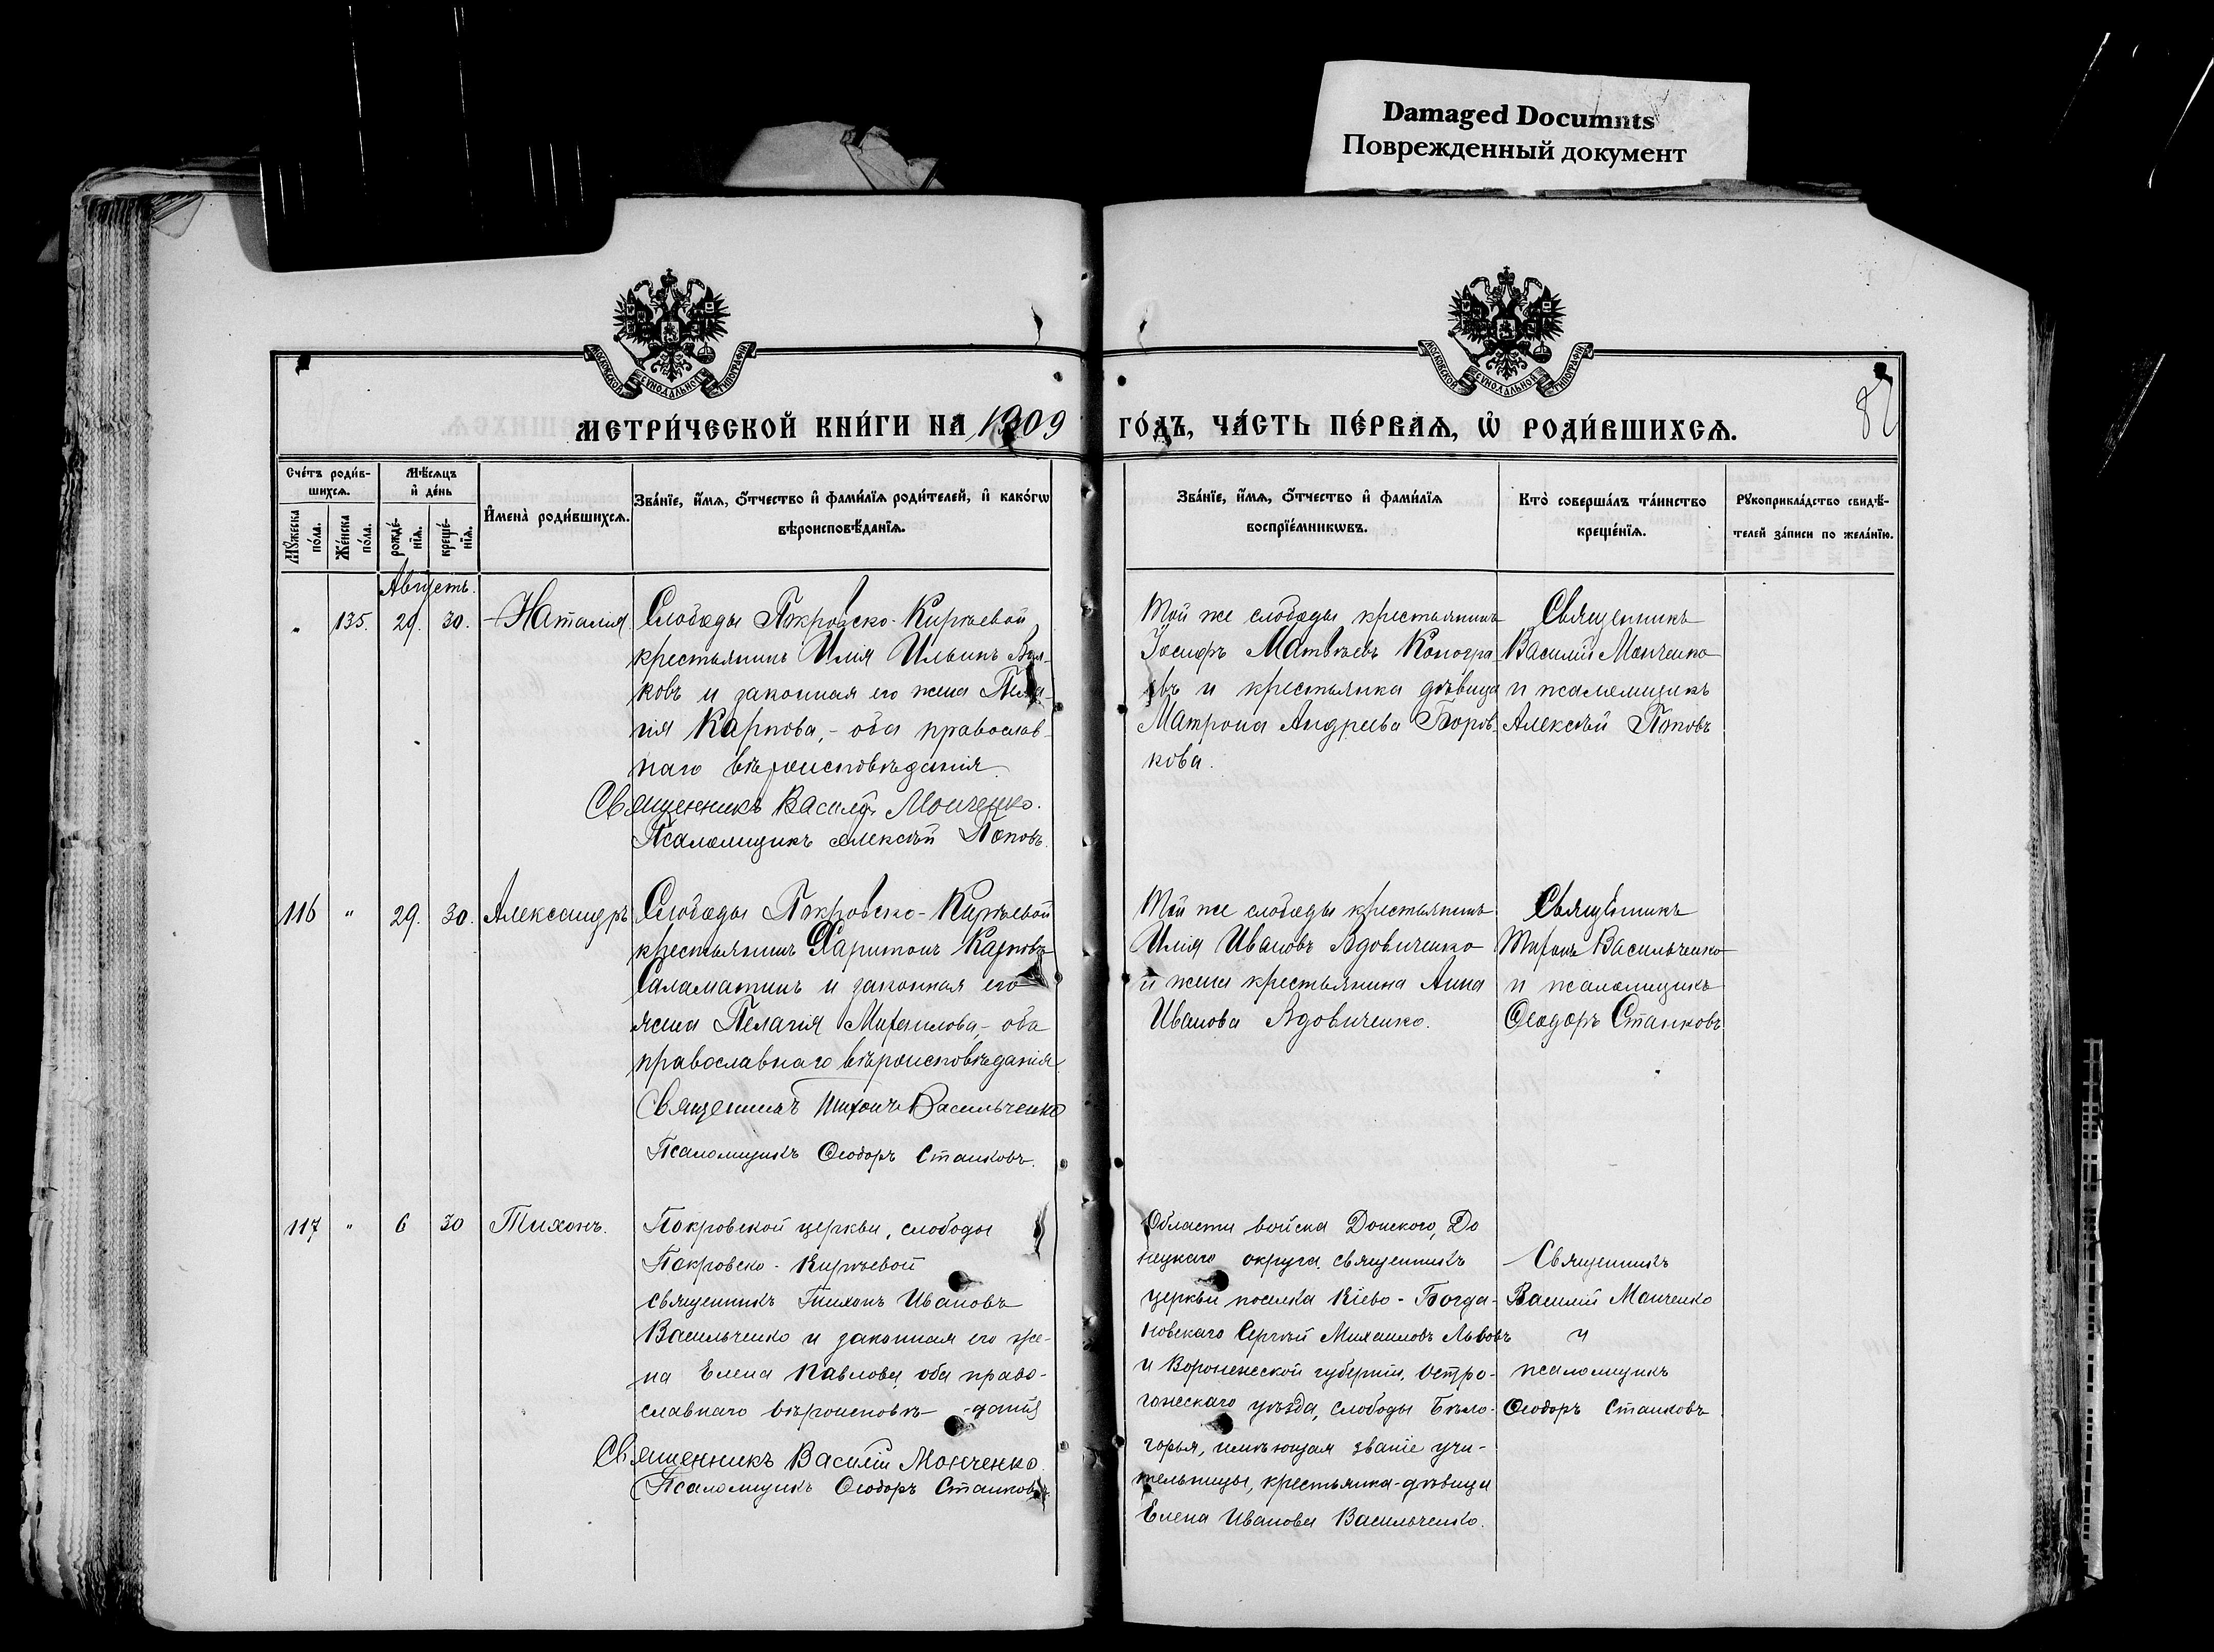 Damaged Documnts
Поврежденный документ
МОСКОВСКОЙ СѴНОДАЛЬНОЙ ТИПОГРАФІИ
МОСКОВСКОЙ СѴНОДАЛЬНОЙ ТИПОГРАФІИ
МЕТРИ́ЧЕСКОЙ КНИ́ГИ НА 1909
ГО́ДЪ, ЧА́СТЬ ПЕ́РВАѦ, Ѡ҆ РОДИ́ВШИХСѦ.
Сче́тъ роди́в-
шихсѧ.
Мꙋ́жеска по́ла.
Же́нска по́ла.
Мѣ́сѧцъ
и҆ де́нь
рожде́-
нїѧ.
креще́-
нїѧ.
И҆мена̀ роди́вшихсѧ.
Зва́нїе, и҆́мѧ, ѻ҆́тчество и҆ фами́лїѧ роди́телей, и҆ како́гѡ
вѣроисповѣ́данїѧ.
Зва́нїе, и҆́мѧ, ѻ҆́тчество и҆ фами́лїѧ
воспрїе́мникѡвъ.
Кто̀ соверша́лъ та́инство
креще́нїѧ.
Рꙋкоприкла́дство свидѣ́-
телей за́писи по жела́нїю.
Августъ.
" 135. 29. 30. Наталия
Слободы Покровско-Киръевой
крестьянинъ Илія Ильинъ
ковъ и законная его жена Пела-
гія Карпова,- оба православ-
наго вѣроисповѣданія.
Священникъ Василій Монченко.
Псаломщикъ Алексѣй Поповъ.
Той же слободы крестьянинъ
Іосифъ Матвѣевъ Коногра-
евъ и крестьянка дѣвица
Матрона Андреева Боров-
кова.
Священникъ
Василій Монченко
и псаломщикъ
Алексѣй Поповъ
116 " 29. 30. Александръ
Слободы Покровско-Киръевой
крестьянинъ Харитонъ Карповъ
Саламатинъ и законная его
жена Пелагія Михаилова,- оба
православнаго вѣроисповѣданія
Священникъ Тихонъ Васильченко
Псаломщикъ Ѳеодоръ Станковъ.
Той же слободы крестьянинъ
Илія Ивановъ Вдовиченко
и жена крестьянина Анна
Иванова Вдовиченко.
Священникъ
Тихонъ Васильченко
и псаломщикъ
Ѳеодоръ Станковъ
117 " 6 30 Тихонъ.
Покровской церкви, слободы
Покровско-Киръевой
священникъ Тихонъ Ивановъ
Васильченко и законная его же-
на Елена Павлова, оба право-
славнаго вѣроисповѣ- -данія
Священникъ Василій Монченко.
Псаломщикъ Ѳеодоръ Станковъ
Области войска Донского, До
нецкаго округа, священникъ
церкви поселка Кіево-Богда-
новскаго Сергѣй Михаиловъ Львовъ
и Воронежской губерніи, Остро-
гожскаго уѣзда, слободы Бѣло-
горья, имѣющая званіе учи-
тельницы, крестьянка-дѣвица
Елена Иванова Васильченко.
Священникъ
Василій Монченко
и
псаломщикъ
Ѳеодоръ Станковъ